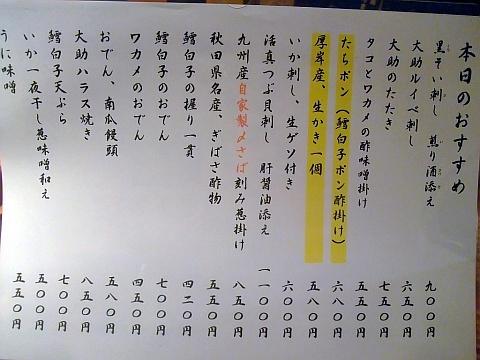 本日のおすすめ
黒そい刺し 煎り酒添え 九〇〇円
大助ルイベ刺し 六五〇円
大助のたたき 七五〇円
タコとワカメの酢味噌掛け 五五〇円
たちポン(鱈白子ポン酢掛け) 六八〇円
厚岸産、生かき一個 五八〇円
いか刺し、生ゲソ付き 六〇〇円
活真つぶ貝刺し 肝醤油添え 一一〇〇円
九州産自家製〆さば刻み葱掛け 八五〇円
秋田県名産、ぎばさ酢物 五五〇円
鱈白子の握り一貫 四二〇円
鱈白子のおでん 七〇〇円
ワカメのおでん 四五〇円
おでん、南瓜饅頭 五八〇円
大助ハラス焼き 八五〇円
鱈白子天ぷら 七〇〇円
いか一夜干し葱味噌和え 五〇〇円
うに味噌 五五〇円